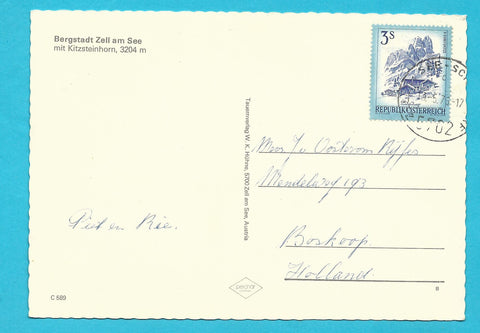 Bergstadt Zell am See
mit Kitzsteinhorn, 3204 m
Piet en Rie.
C 589
Tauernverlag W. K. Höhne, 5700 Zell am See, Austria
3S
REPUBLIK ÖSTERREICH
5702
Oosterom
193
Boskoop
Holland.
8